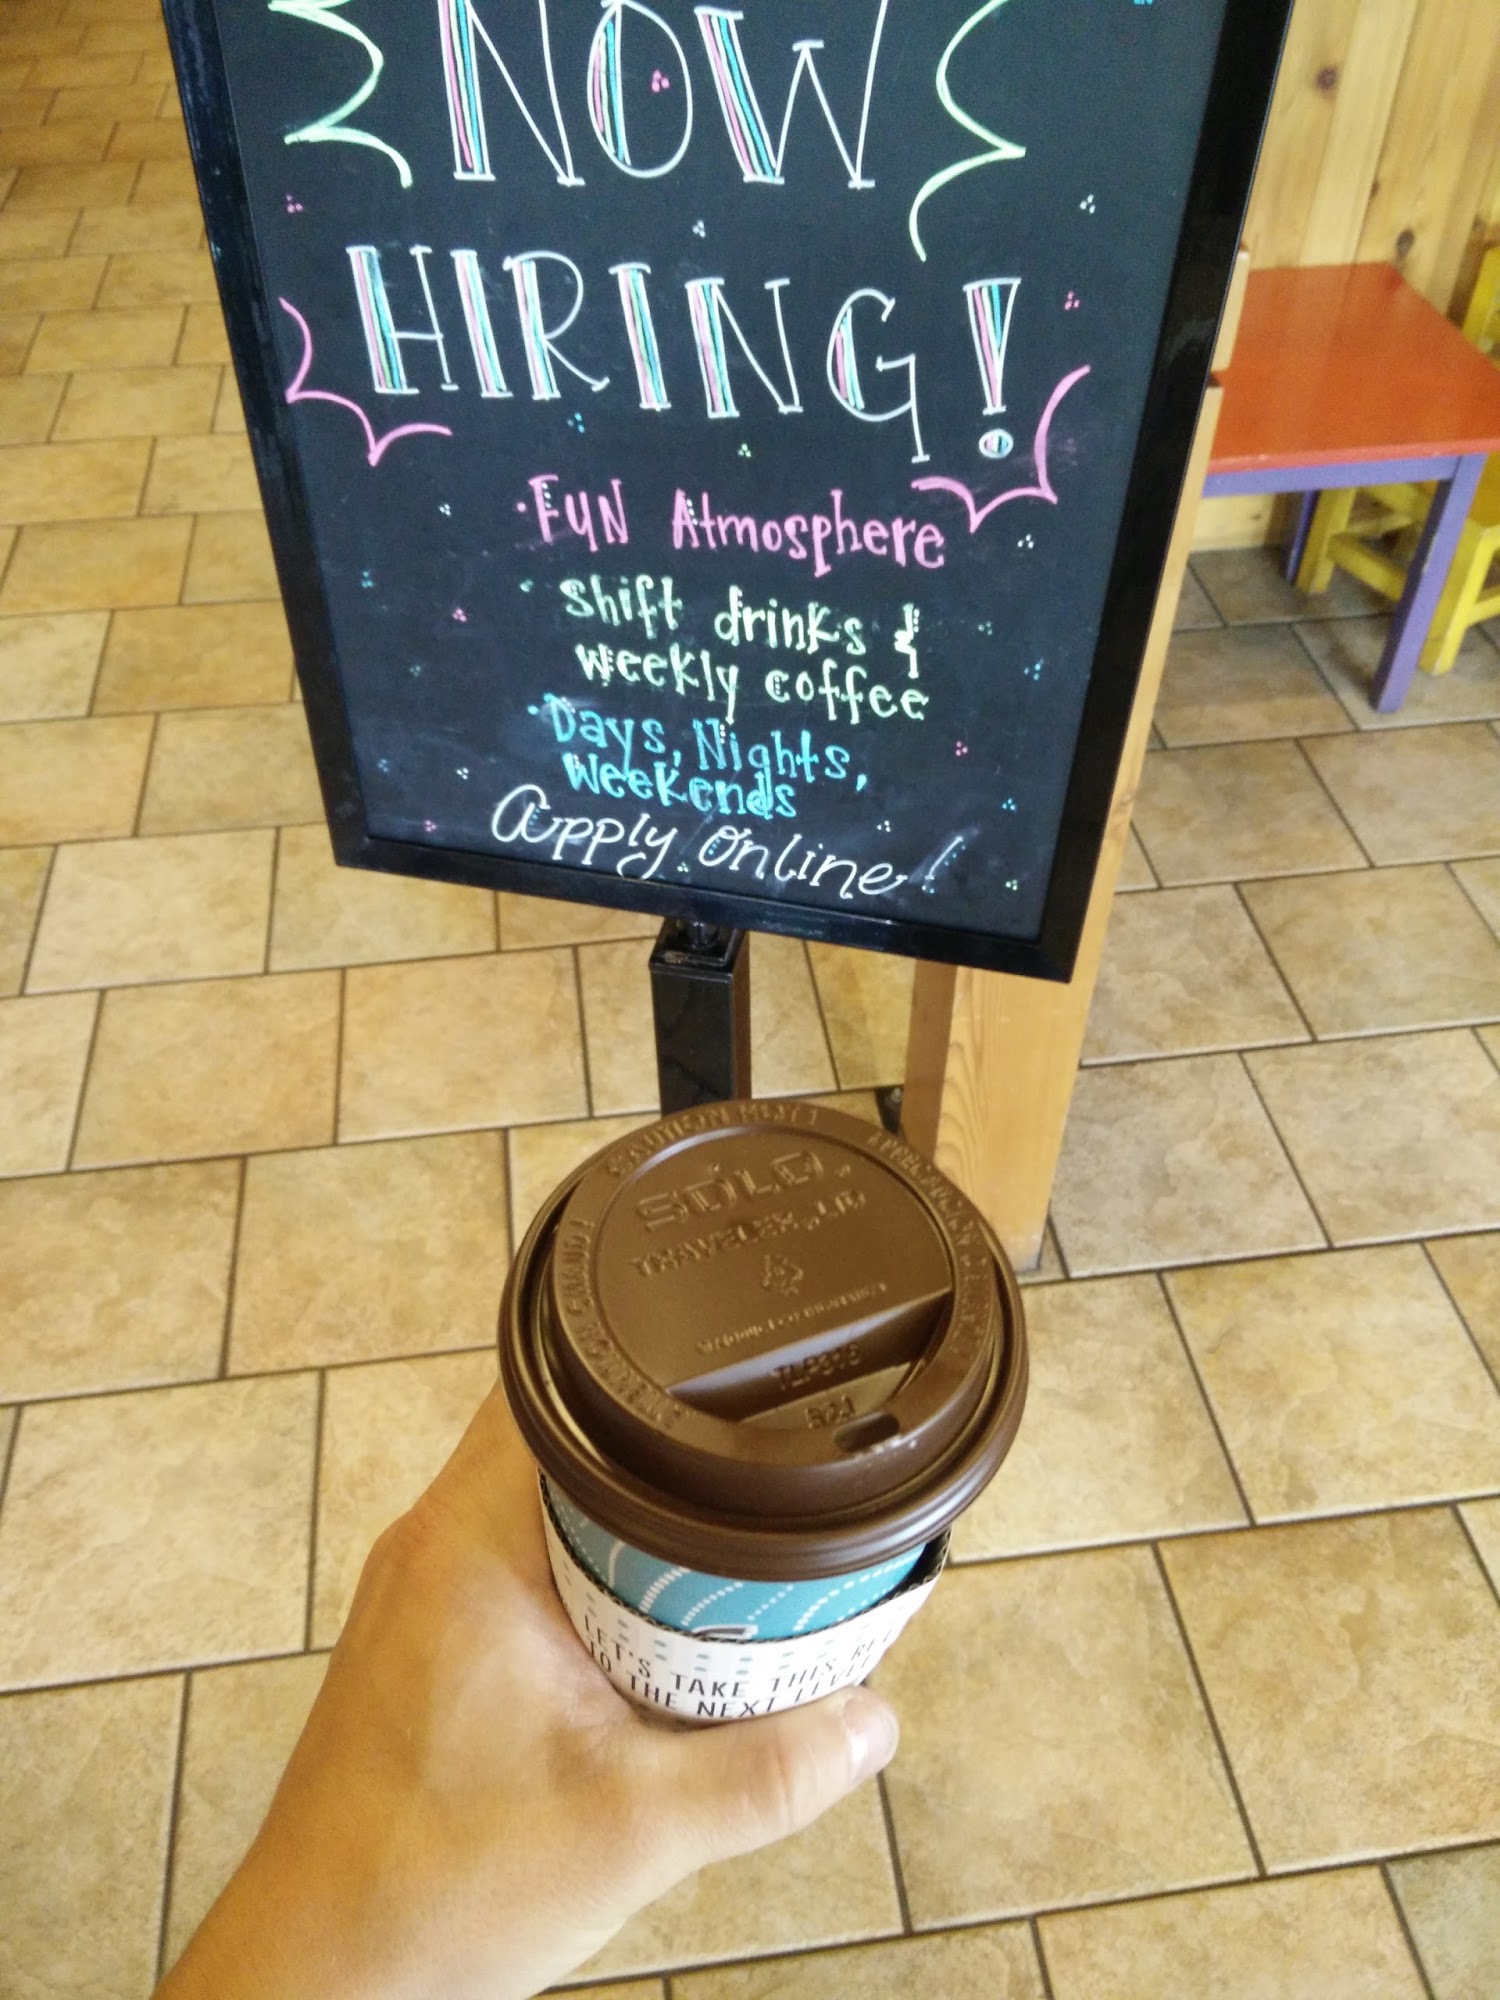 NOW
HIRING!
• FUN Atmosphere
• Shift drinks &
weekly coffee
• Days, Nights,
Weekends
Apply Online!
CAUTION HOT!
SOLO
TRAVELER
TLP316
LET'S TAKE THIS
TO THE NEXT LEVEL